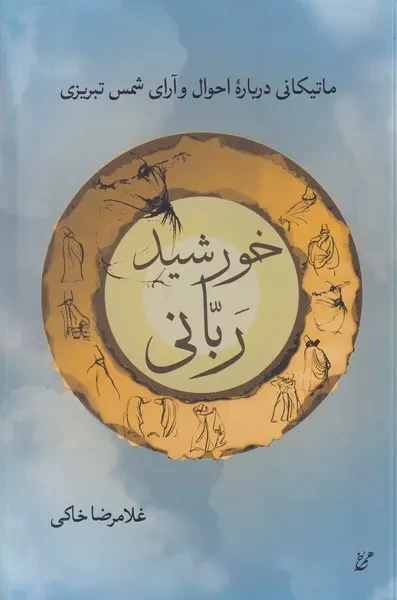 ماتیکانی دربارهٔ احوال و آرای شمس تبریزی
خورشید
رَبّانی
غلامرضا خاکی